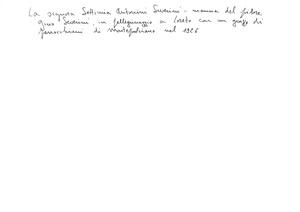 La signora Settimia Antonini Severini - mamma del pittore
Gino Severini, in pellegrinaggio a Loreto con un gruppo di
parrocchiani di Montepulciano nel 1926